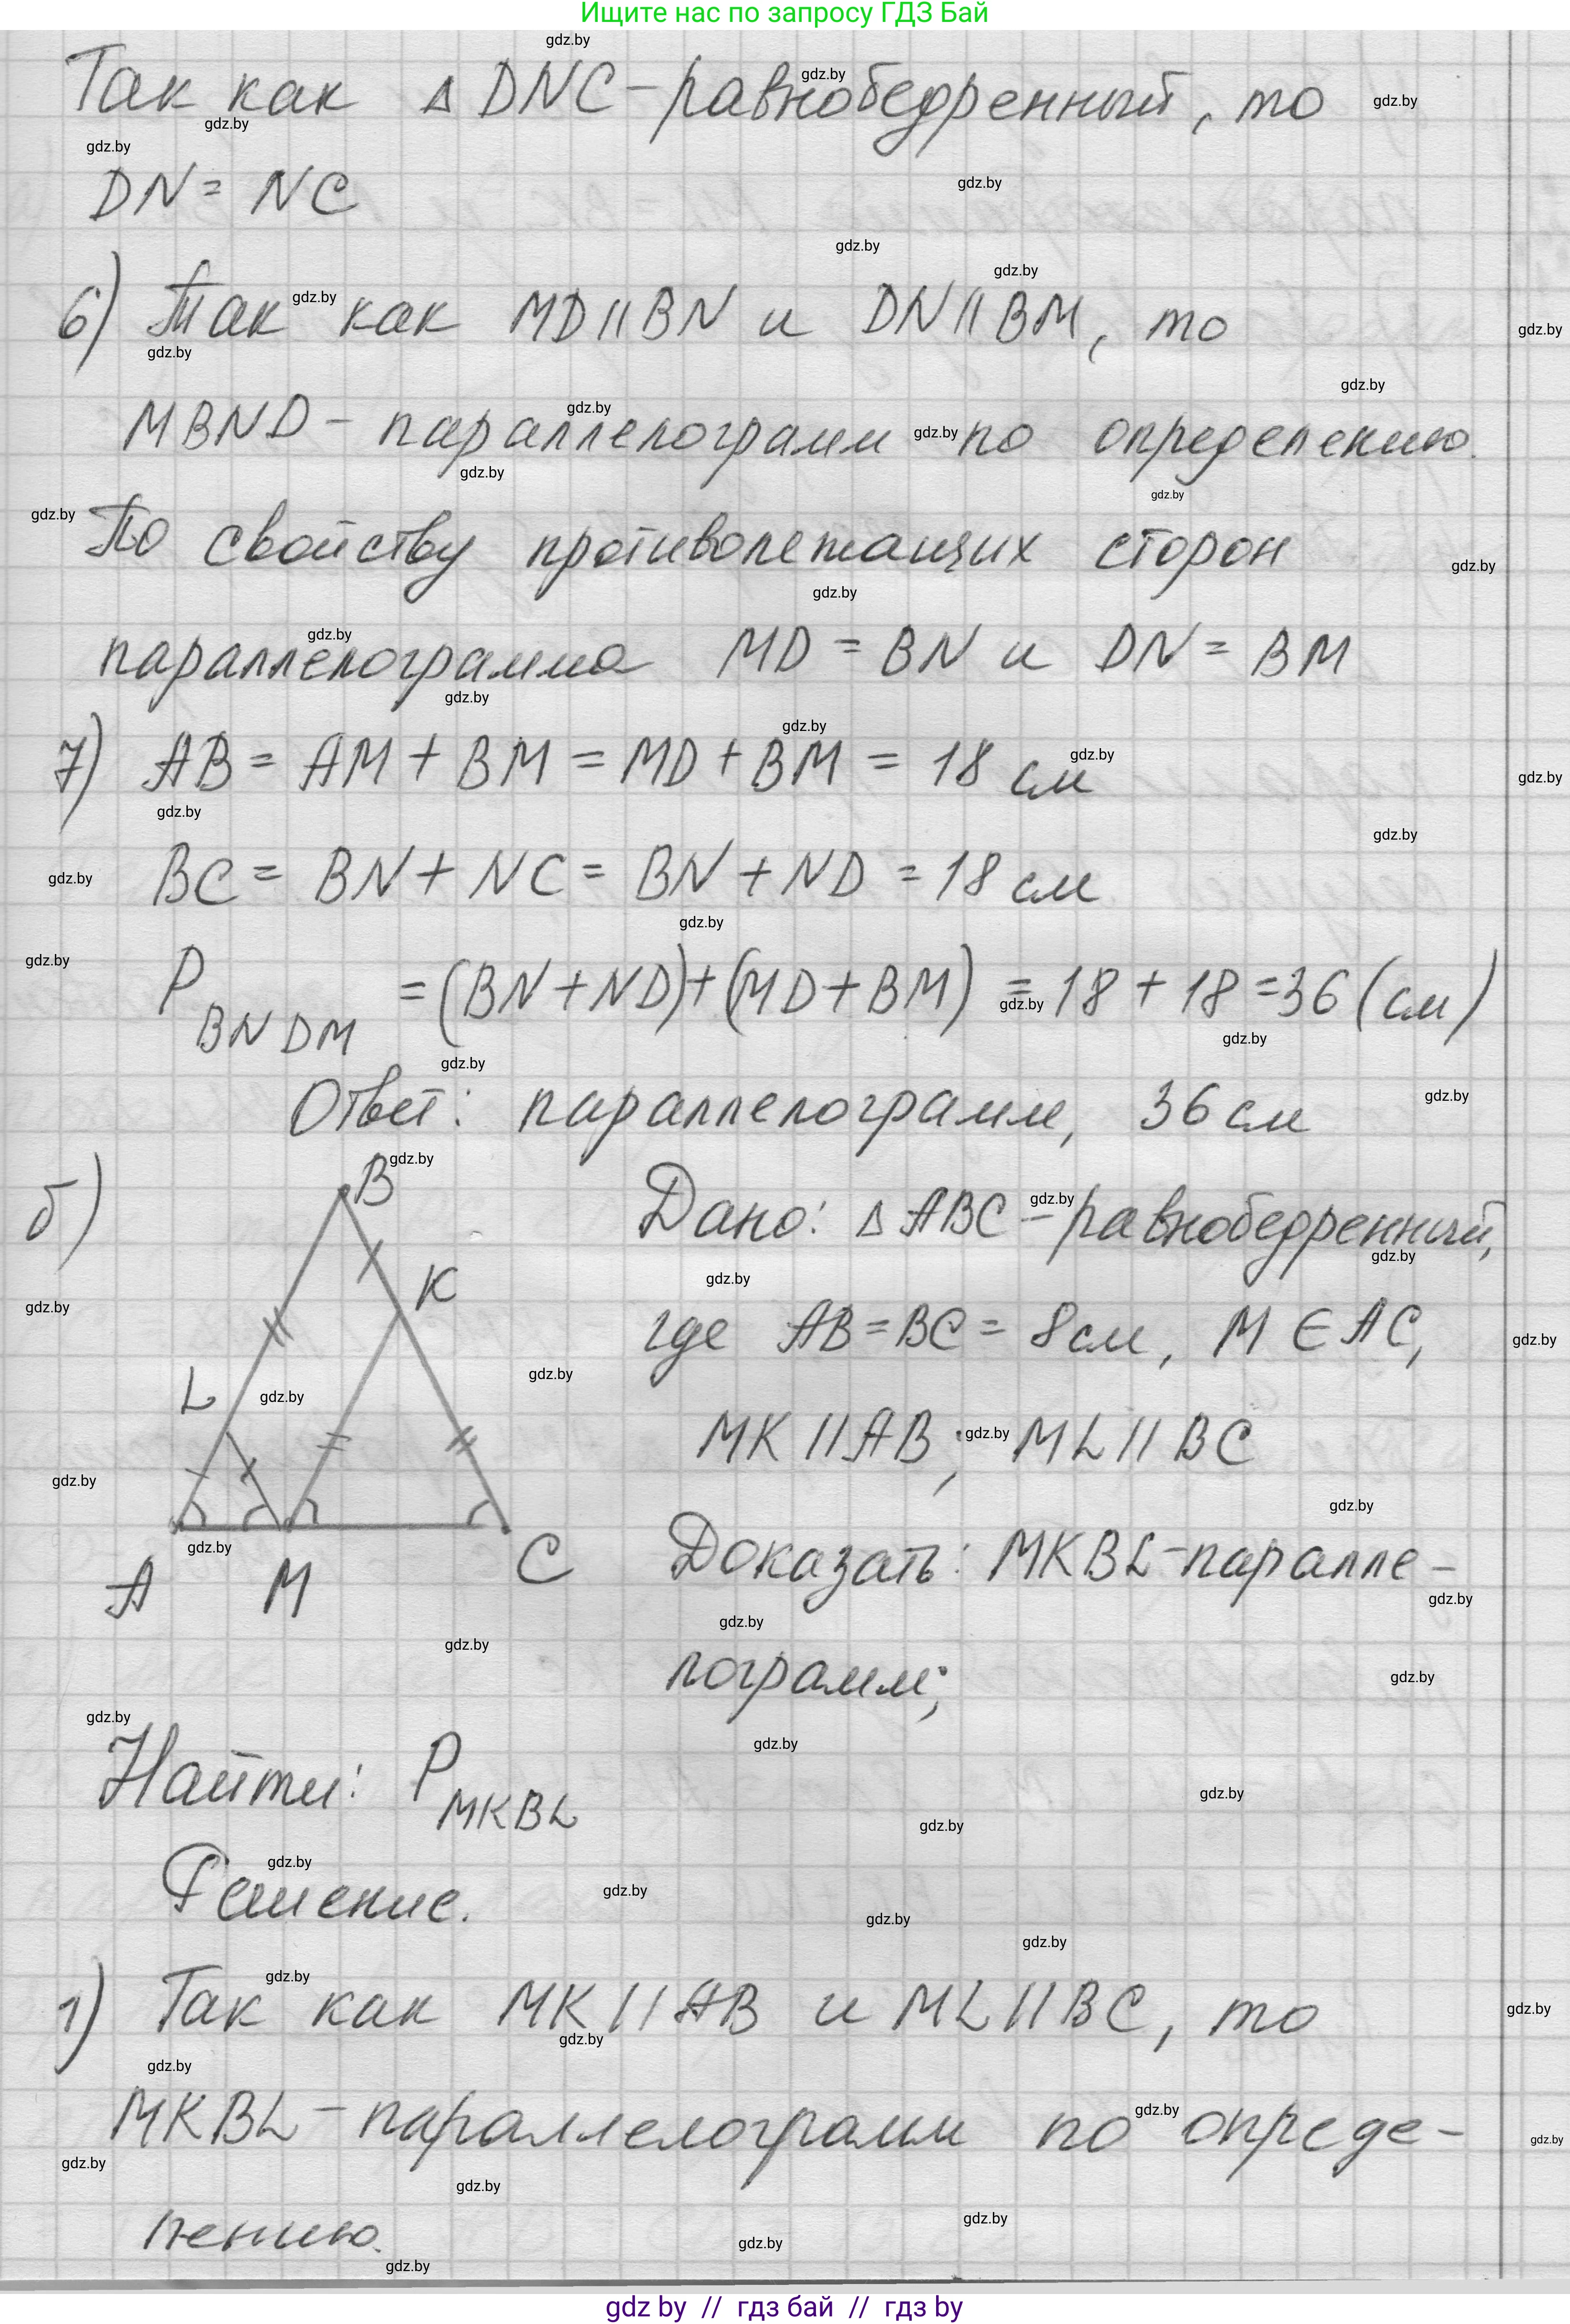 Ищите нас по запросу ГДЗ Бай
Так как △ DNC - равнобедренный, то
DN = NC
6) Так как MD || BN и DN || BM, то
MBND - параллелограмм по определению.
По свойству противолежащих сторон
параллелограмма MD = BN и DN = BM
7) AB = AM + BM = MD + BM = 18 см
BC = BN + NC = BN + ND = 18 см
P BNDM = (BN + ND) + (MD + BM) = 18 + 18 = 36 (см)
Ответ: параллелограмм, 36 см
б)
B
K
L
A M C
Дано: △ ABC - равнобедренный,
где AB = BC = 8 см, M ∈ AC,
MK || AB; ML || BC
Доказать: MKBL - паралле-
лограмм;
Найти: P MKBL
Решение.
1) Так как MK || AB и ML || BC, то
MKBL - параллелограмм по опреде-
лению.
gdz by // гдз бай // гдз by